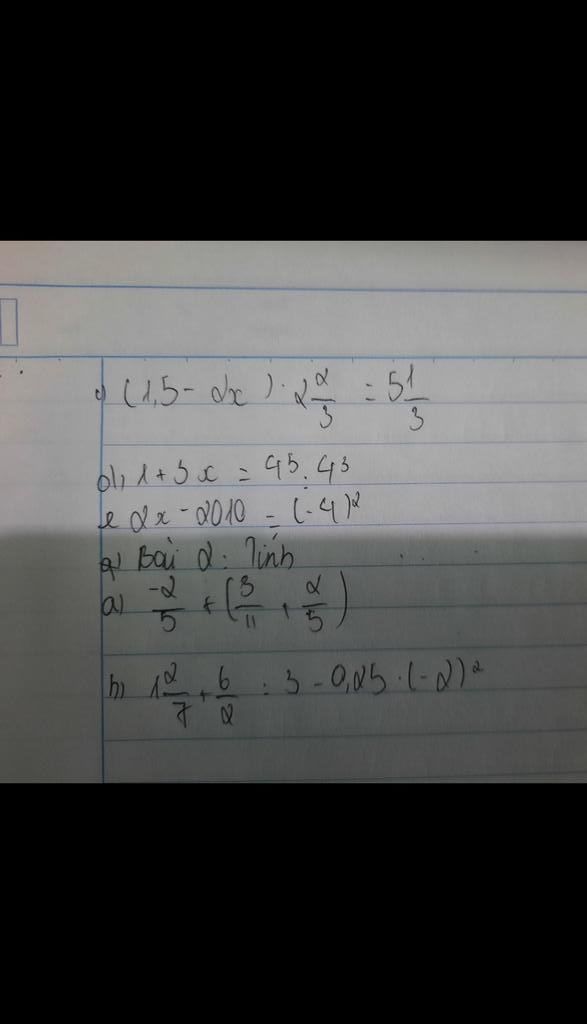 c) (1,5 - 2x) . 2 2/3 = 5 1/3
d), 1 + 3x = 45 : 43
e 2x - 2010 = (-4)²
Bài 2 : Tính
a) -2/5 + (3/11 + 2/5)
b), 1 2/7 + 6/2 : 3 - 0,25 . (-2)²